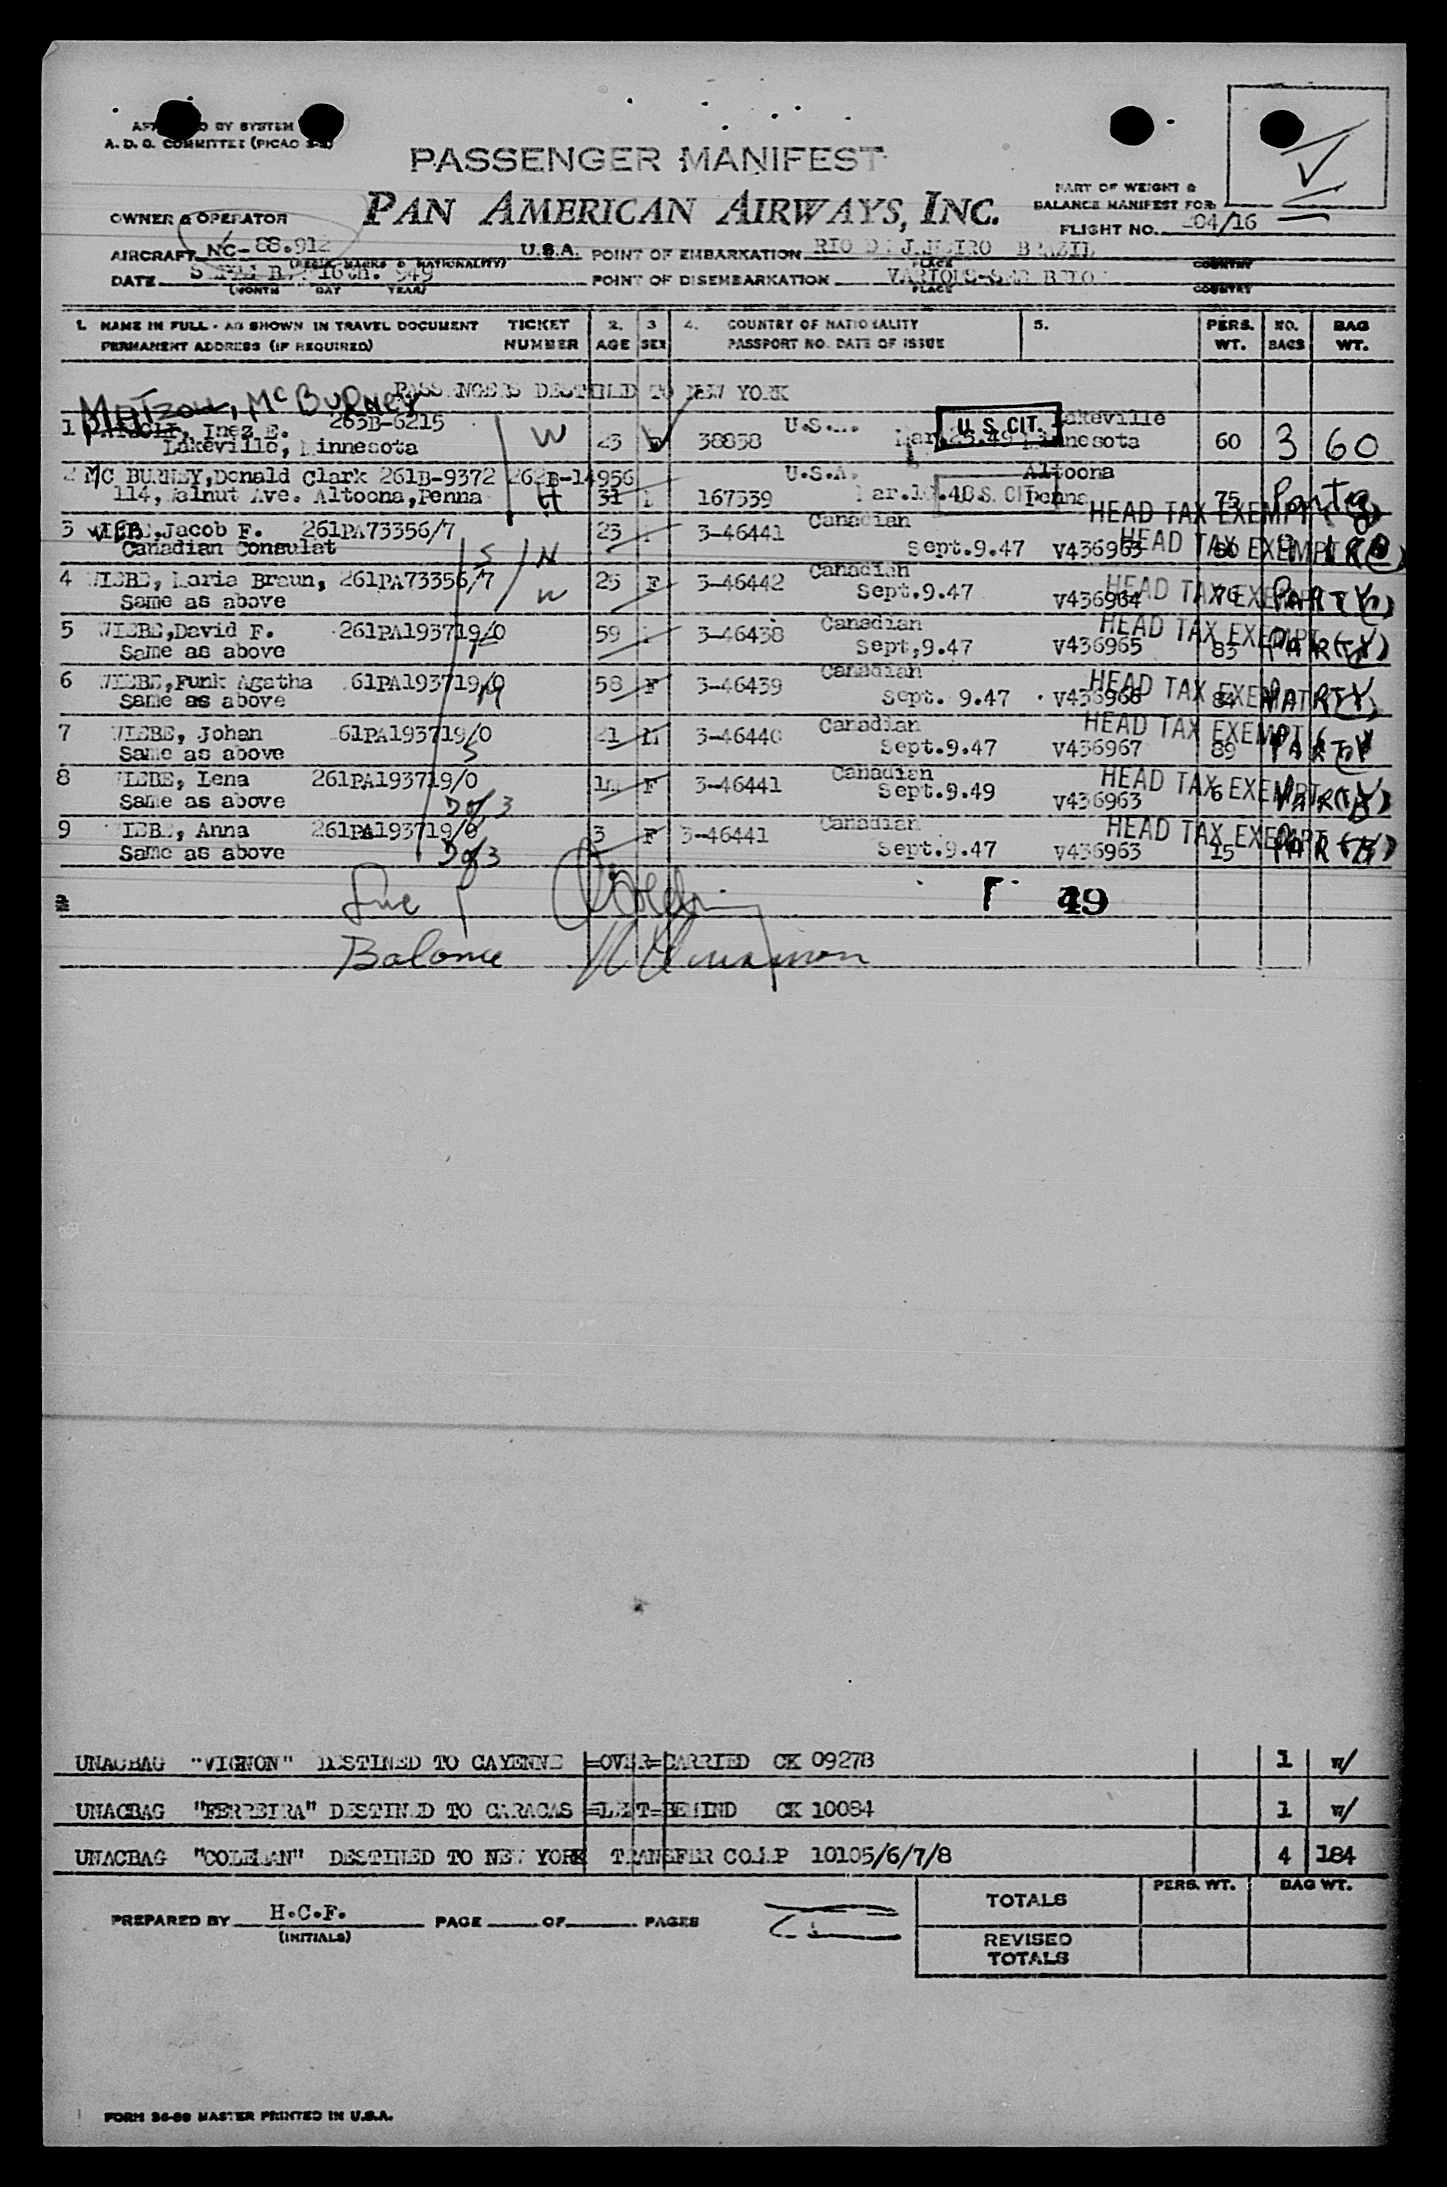 A. D. O. COMMITTEE (PICAO
PASSENGER MANIFEST
PAN AMERICAN AIRWAYS, INC.
PART OF WEIGHT &
BALANCE MANIFEST FOR:
FLIGHT NO. 204/16
OWNER & OPERATOR
AIRCRAFT NC-88.912 U.S.A. POINT OF EMBARKATION RIO DE JANEIRO BRAZIL
(REGIS. MARKS & NATIONALITY) PLACE COUNTRY
DATE 16th. 949 POINT OF DISEMBARKATION VARIOUS-SEE BELOW
(MONTH DAY YEAR) PLACE COUNTRY
1. NAME IN FULL - AS SHOWN IN TRAVEL DOCUMENT TICKET 2. 3 4. COUNTRY OF NATIONALITY 5. PERS. NO. BAG
PERMANENT ADDRESS (IF REQUIRED) NUMBER AGE SEX PASSPORT NO. DATE OF ISSUE WT. BAGS WT.
PASSENGERS DESTINED TO NEW YORK
McBURNEY
1 Inez E. 263B-6215 W 23 F 38838 U.S. U.S. CIT. Lakeville
Lakeville, Minnesota Minnesota 60 3 60
2 MC BURNEY, Donald Clark 261B-9372 262B-14956 U.S.A. Altoona
114, Walnut Ave. Altoona, Penna H 31 167339 U.S. CIT Penna 75 Party
HEAD TAX EXEMPT
3 WIEBE, Jacob F. 261PA73356/7 23 3-46441 Canadian
Canadian Consulat S N Sept.9.47 V436963 HEAD TAX EXEMPT
4 WIEBE, Maria Braun, 261PA73356/7 25 F 3-46442 Canadian
Same as above W Sept.9.47 V436964 HEAD TAX EXEMPT 76 PARTY
5 WIEBE, David F. 261PA193719/0 59 3-46438 Canadian
Same as above Sept,9.47 V436965 HEAD TAX EXEMPT 83 PARTY
6 WIEBE, Funk Agatha 61PA193719/0 58 F 3-46439 Canadian
Same as above M Sept. 9.47 V436966 HEAD TAX EXEMPT 84 PARTY
7 WIEBE, Johan 61PA193719/0 21 M 3-46440 Canadian
Same as above S Sept.9.47 V436967 HEAD TAX EXEMPT 89 PARTY
8 WIEBE, Lena 261PA193719/0 F 3-46441 Canadian
Same as above D of 3 Sept.9.49 V436963 HEAD TAX EXEMPT 6 PARTY
9 WIEBE, Anna 261PA193719/0 3 F 3-46441 Canadian
Same as above D of 3 Sept.9.47 V436963 HEAD TAX EXEMPT 15 PARTY
49
Balance
UNACBAG "VIGNON" DESTINED TO CAYENNE =OVER=CARRIED CK 09278 1 w/
UNACBAG "FERREIRA" DESTINED TO CARACAS =LEFT=BEHIND CK 10084 1 w/
UNACBAG "COLEMAN" DESTINED TO NEW YORK TRANSFER COMP 10105/6/7/8 4 184
PREPARED BY H.C.F. PAGE OF PAGES
(INITIALS)
TOTALS PERS. WT. BAG WT.
REVISED
TOTALS
FORM 36-88 MASTER PRINTED IN U.S.A.